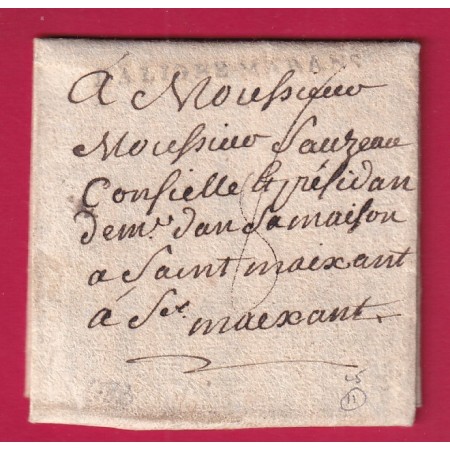 à Monsieur
Monsieur Sauzeau
Consielle & présidan
dem.r dan Samaison
a Saint maixant
à St. maexant.
8